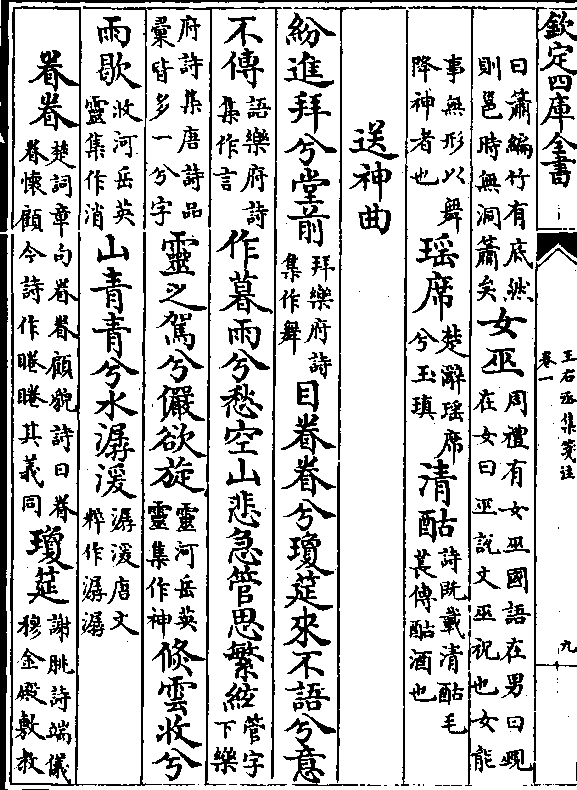 欽定四庫全書
王右丞集箋注
卷一
九
曰簫編竹有底然
則邕時無洞簫矣
女巫
周禮有女巫國語在男曰覡
在女曰巫說文巫祝也女能
事無形以舞
降神者也
瑶席
楚辭瑶席
兮玉瑱
清酤
詩既載清酤毛
萇傳酤酒也
送神曲
紛進拜兮堂前
拜樂府詩
集作舞
目眷眷兮瓊筵來不語兮意
不傳
語樂府詩
集作言
作暮雨兮愁空山悲急管思繁絃
管字
下樂
府詩集唐詩品
彚皆多一兮字
靈之駕兮儼欲旋
靈河岳英
靈集作神
倐雲收兮
雨歇
收河岳英
靈集作消
山青青兮水潺湲
潺湲唐文
粹作潺潺
眷眷
楚詞章句眷眷顧貌詩曰眷
眷懷顧今詩作睠睠其義同
瓊筵
謝朓詩端儀
穆金殿敷教